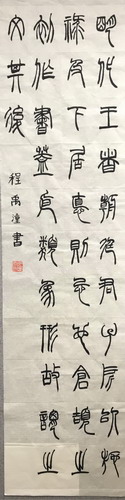 明化王者朝廷君子所以施
祿及下居德則忌也倉頡之
初作書蓋依類象形故謂之
文其後
程禹潼書